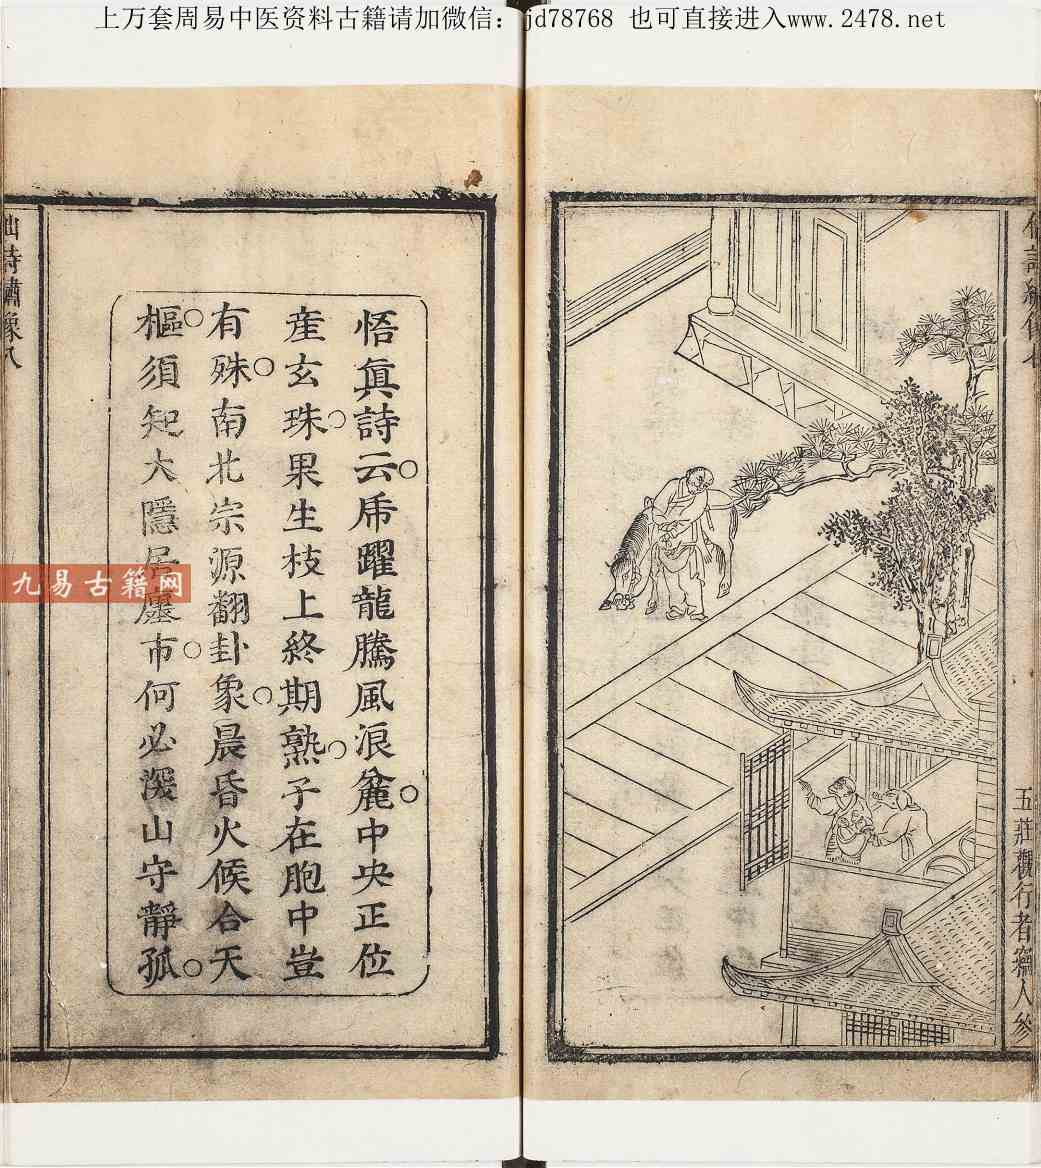 上万套周易中医资料古籍请加微信：jd78768 也可直接进入www.2478.net
五莊觀行者竊人參
悟眞詩云虎躍龍騰風浪麄中央正位
產玄珠果生枝上終期熟子在胞中豈
有殊南北宗源翻卦象晨昏火候合天
樞須知大隱居廛市何必深山守靜孤
九易古籍网